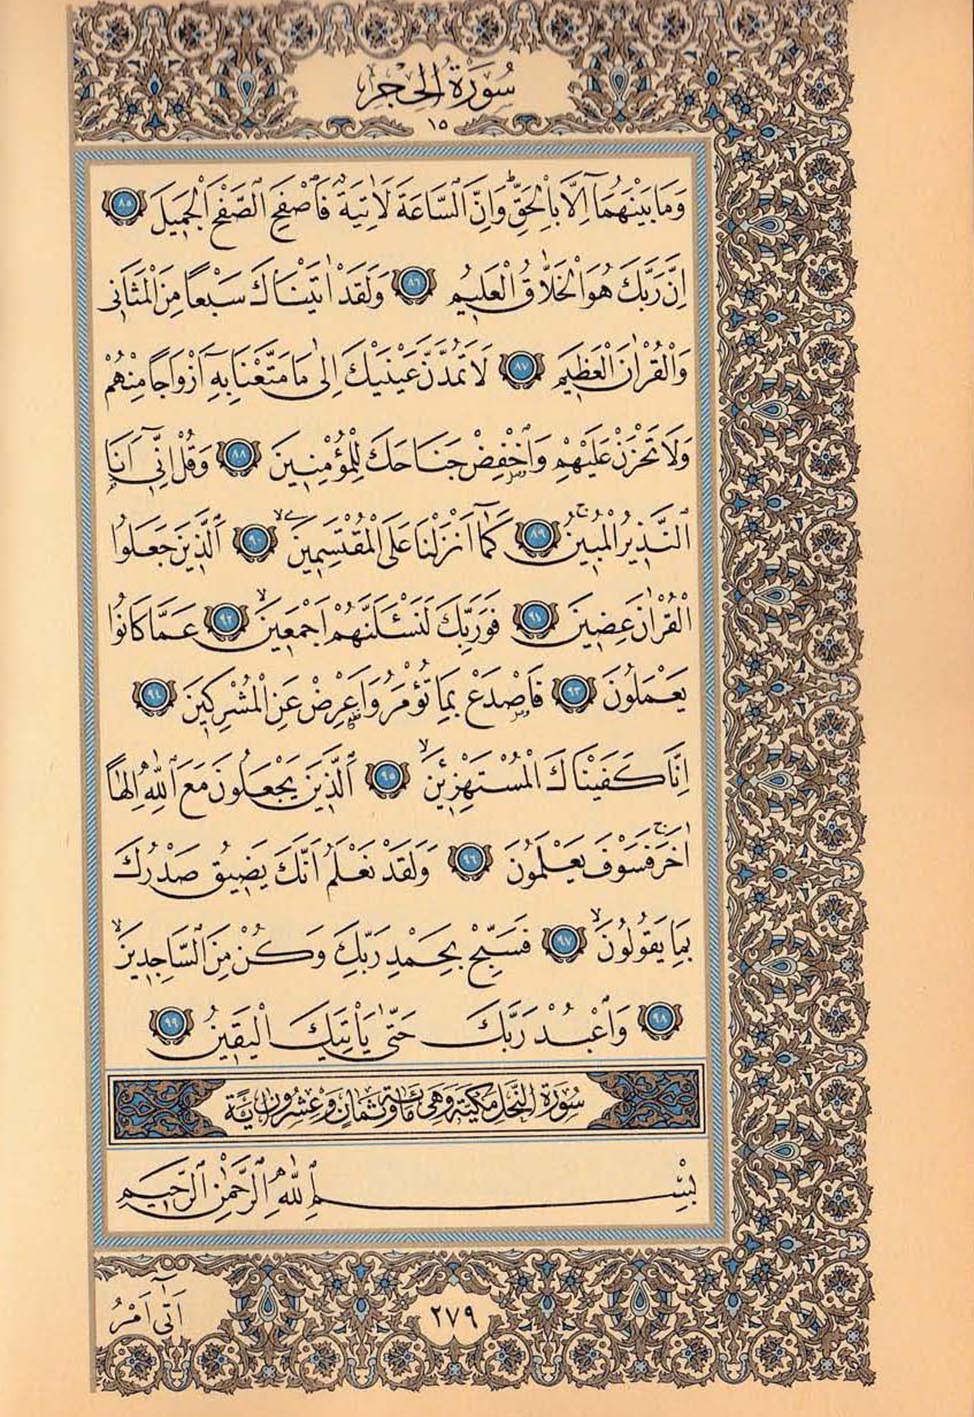 سُورَةُ الْحِجْرِ
١٥
وَمَا بَيْنَهُمَٓا اِلَّا بِالْحَقِّۜ وَاِنَّ السَّاعَةَ لَاٰتِيَةٌ فَاصْفَحِ الصَّفْحَ الْجَمٖيلَ ٨٥
اِنَّ رَبَّكَ هُوَ الْخَلَّاقُ الْعَلٖيمُ ٨٦ وَلَقَدْ اٰتَيْنَاكَ سَبْعًا مِنَ الْمَثَانٖي
وَالْقُرْاٰنَ الْعَظٖيمَ ٨٧ لَا تَمُدَّنَّ عَيْنَيْكَ اِلٰى مَا مَتَّعْنَا بِهٖٓ اَزْوَاجًا مِنْهُمْ
وَلَا تَحْزَنْ عَلَيْهِمْ وَاخْفِضْ جَنَاحَكَ لِلْمُؤْمِنٖينَ ٨٨ وَقُلْ اِنّٖٓي اَنَا
النَّذٖيرُ الْمُبٖينُۚ ٨٩ كَمَٓا اَنْزَلْنَا عَلَى الْمُقْتَسِمٖينَۙ ٩٠ اَلَّذٖينَ جَعَلُوا
الْقُرْاٰنَ عِضٖينَ ٩١ فَوَرَبِّكَ لَنَسْـَٔلَنَّهُمْ اَجْمَعٖينَۙ ٩٢ عَمَّا كَانُوا
يَعْمَلُونَ ٩٣ فَاصْدَعْ بِمَا تُؤْمَرُ وَاَعْرِضْ عَنِ الْمُشْرِكٖينَ ٩٤
اِنَّا كَفَيْنَاكَ الْمُسْتَهْزِءٖينَۙ ٩٥ اَلَّذٖينَ يَجْعَلُونَ مَعَ اللّٰهِ اِلٰهًا
اٰخَرَۚ فَسَوْفَ يَعْلَمُونَ ٩٦ وَلَقَدْ نَعْلَمُ اَنَّكَ يَضٖيقُ صَدْرُكَ
بِمَا يَقُولُونَۙ ٩٧ فَسَبِّحْ بِحَمْدِ رَبِّكَ وَكُنْ مِنَ السَّاجِدٖينَۙ
٩٨ وَاعْبُدْ رَبَّكَ حَتّٰى يَاْتِيَكَ الْيَقٖينُ ٩٩
سُورَةُ النَّحْلِ مَكِّيَّةٌ وَهِىَ مِائَةٌ وَثَمَانٍ وَعِشْرُونَ اٰيَةً
بِسْمِ اللّٰهِ الرَّحْمٰنِ الرَّحٖيمِ
اَتٰٓى اَمْرُ
٢٧٩